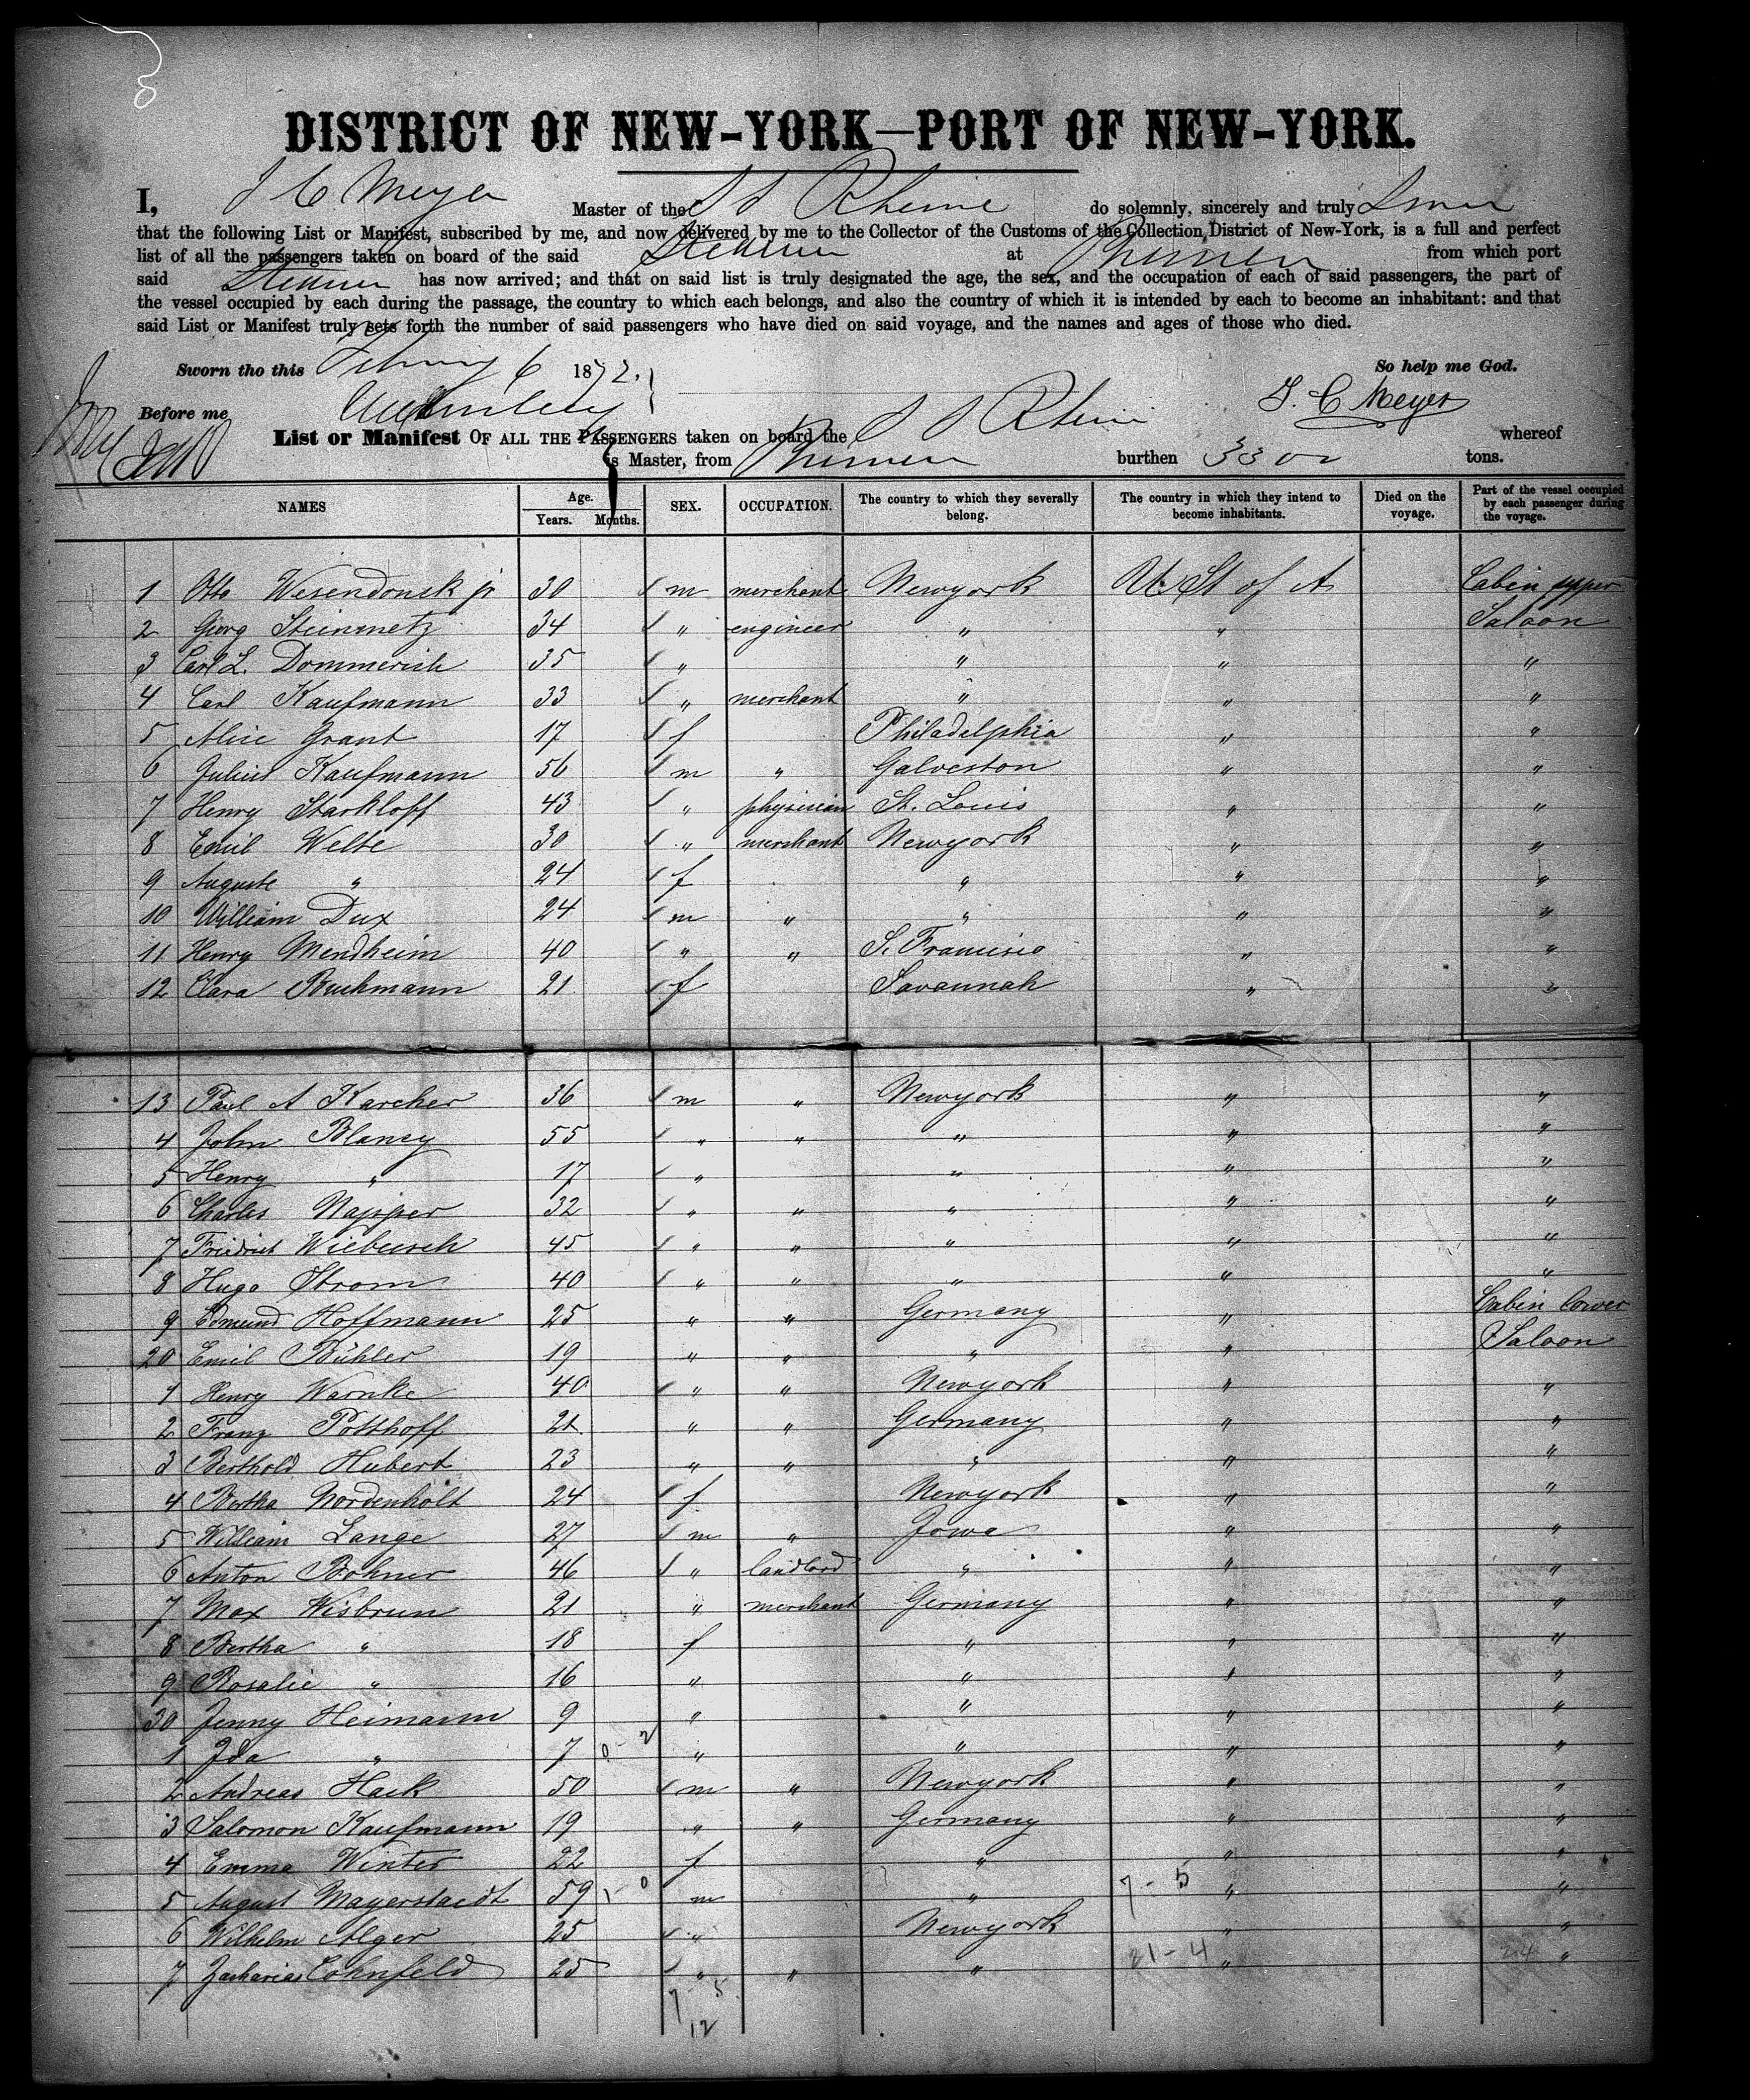 DISTRICT OF NEW-YORK—PORT OF NEW-YORK.
I, J C Meyer Master of the S S Rhein do solemnly, sincerely and truly Swear
that the following List or Manifest, subscribed by me, and now delivered by me to the Collector of the Customs of the Collection District of New-York, is a full and perfect
list of all the passengers taken on board of the said Steamer at Bremen from which port
said Steamer has now arrived; and that on said list is truly designated the age, the sex, and the occupation of each of said passengers, the part of
the vessel occupied by each during the passage, the country to which each belongs, and also the country of which it is intended by each to become an inhabitant: and that
said List or Manifest truly sets forth the number of said passengers who have died on said voyage, and the names and ages of those who died.
Sworn tho this 6 1872. So help me God.
Before me J. C Meyer
List or Manifest OF ALL THE PASSENGERS taken on board the S S Rhein whereof
is Master, from Bremen burthen 3300 tons.
NAMES Age. Years. Months. SEX. OCCUPATION. The country to which they severally belong. The country in which they intend to become inhabitants. Died on the voyage. Part of the vessel occupied by each passenger during the voyage.
1 Otto Wesendonck jr 30 m merchant Newyork U St of A Cabin upper
2 Georg Steinmetz 34 " engineer " " Saloon
3 Carl L. Dommerich 35 " " " "
4 Carl Kaufmann 33 " merchant " " "
5 Alice Grant 17 f Philadelphia " "
6 Julius Kaufmann 56 m " Galveston " "
7 Henry Starkloff 43 " physician St. Louis " "
8 Emil Welte 30 " merchant Newyork " "
9 Auguste " 24 f " " "
10 William Dux 24 m " " " "
11 Henry Mendheim 40 " " S. Francisco " "
12 Clara Buchmann 21 f Savannah " "
13 Paul A Karcher 36 m " Newyork " "
4 John Blancy 55 " " " " "
5 Henry " 17 " " " "
6 Charles Napper 32 " " " " "
7 Friedrich Wiebusch 45 " " " " "
8 Hugo Strom 40 " " " " "
9 Edmund Hoffmann 25 " " Germany " Cabin lower
20 Emil Bühler 19 " " " " Saloon
1 Henry Warnke 40 " " Newyork " "
2 Franz Potthoff 21 " " Germany " "
3 Berthold Hubert 23 " " " " "
4 Bertha Nordenholt 24 f Newyork " "
5 William Lange 27 m " Iowa " "
6 Anton Bohner 46 " landlord " " "
7 Max Wisbrun 21 " merchant Germany " "
8 Bertha " 18 f " " "
9 Rosalie " 16 " " " "
30 Jenny Heimann 9 " " " "
1 Ida " 7 0 - 2 " " " "
2 Andreas Hack 50 m " Newyork " "
3 Salomon Kaufmann 19 " " Germany " "
4 Emma Winter 22 f " " "
5 August Mayerstaedt 59 1 - 0 m " 7 - 5 " "
6 Wilhelm Alger 25 " Newyork " "
7 Zacharias Cohnfeld 25 " " " 21 - 4 " 24 "
7 - 5
12